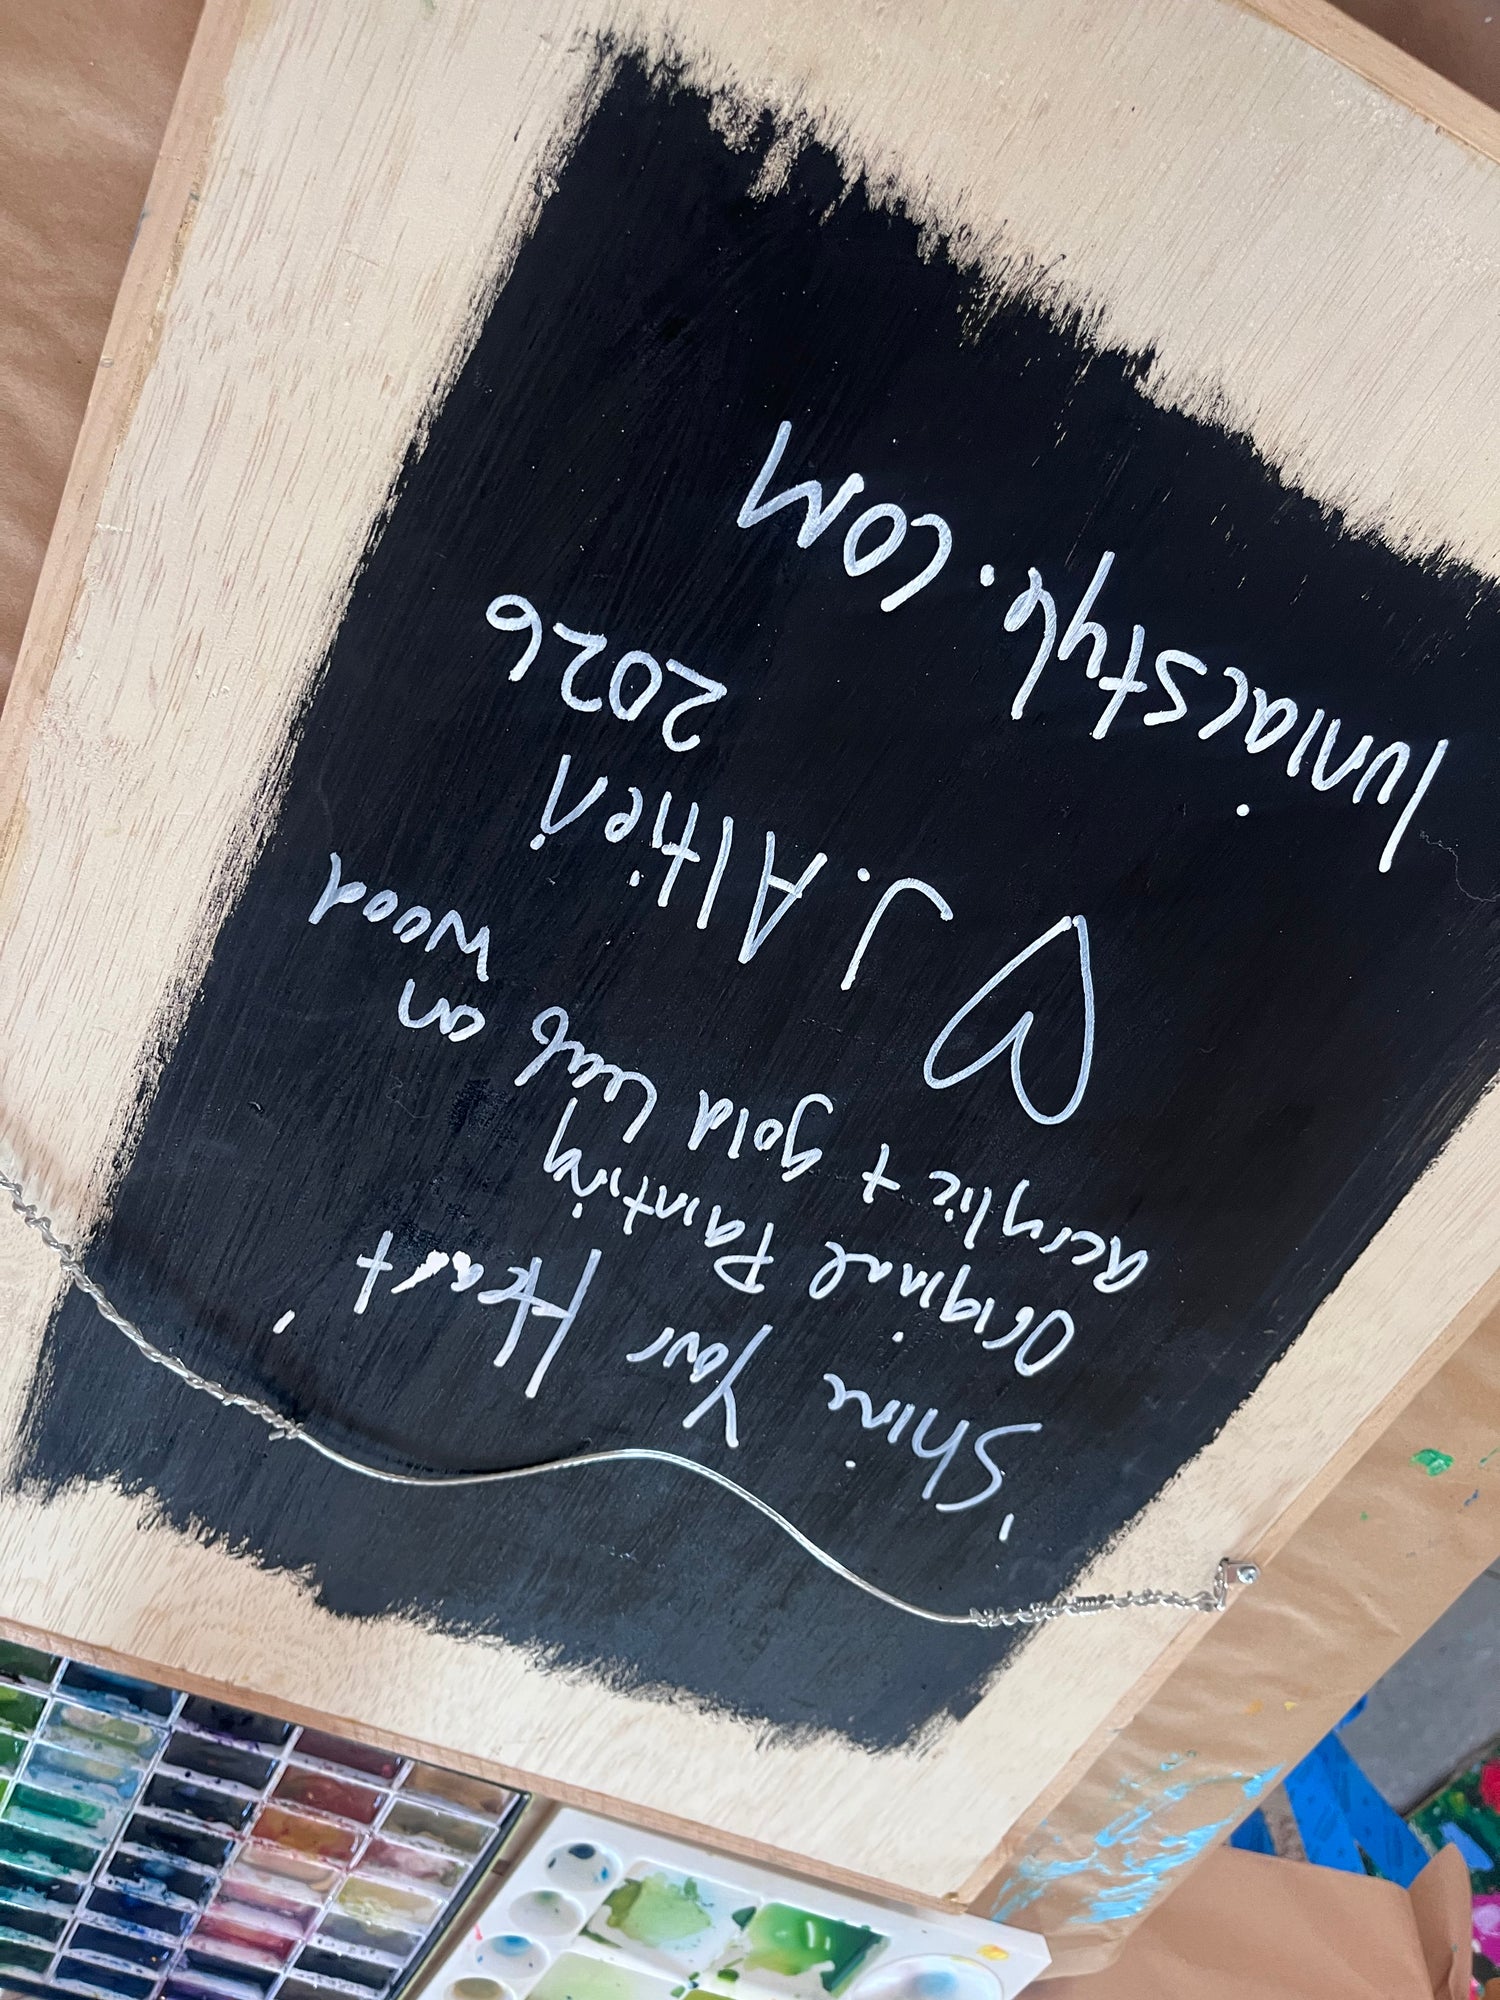 'Shine Your Heart'
Original Painting
acrylic + gold leaf on
wood
J. Altieri
2026
luniacstyle.com